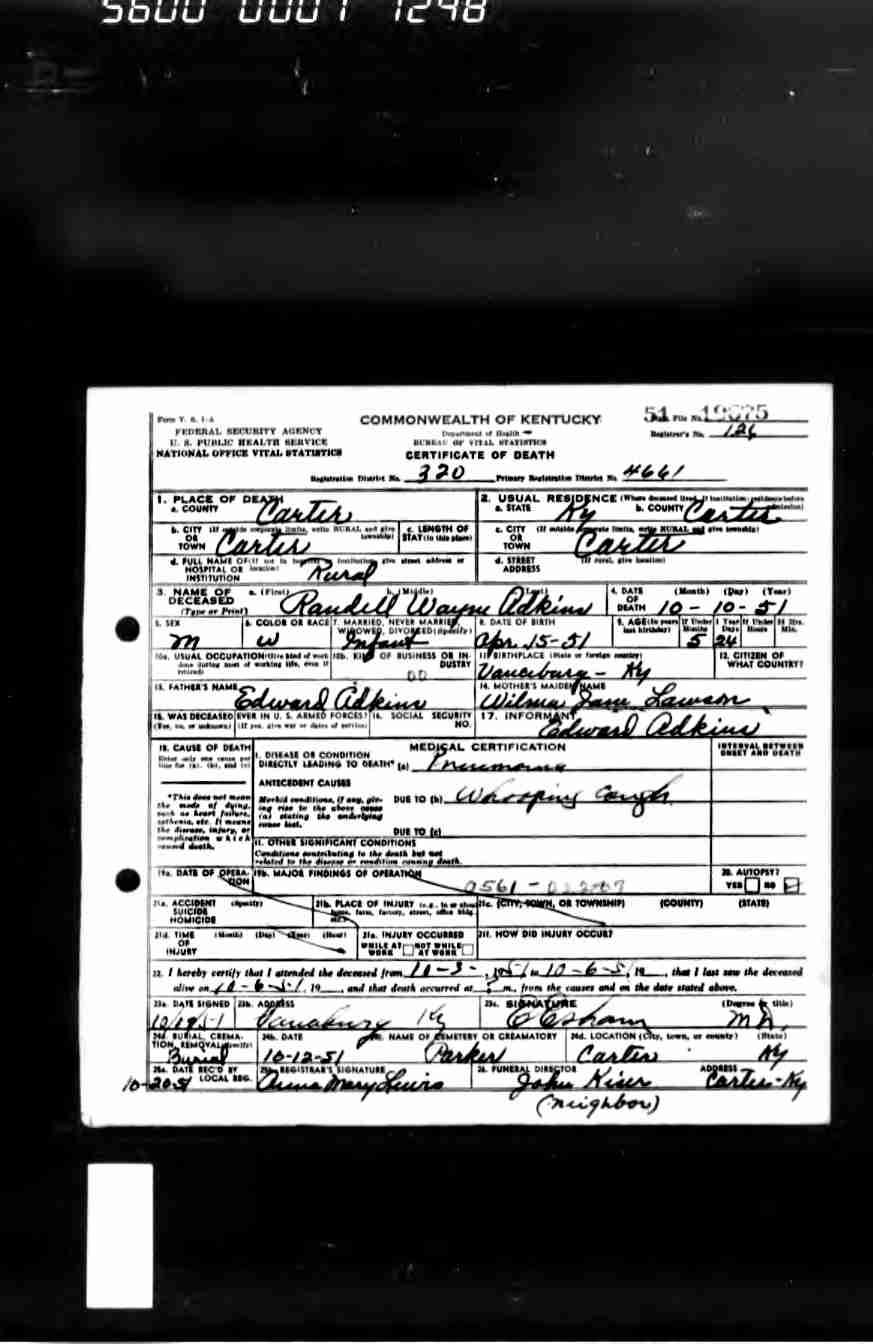 5600 0001 1298
Form V. S. 1-A
FEDERAL SECURITY AGENCY
U. S. PUBLIC HEALTH SERVICE
NATIONAL OFFICE VITAL STATISTICS
COMMONWEALTH OF KENTUCKY
Department of Health
BUREAU OF VITAL STATISTICS
CERTIFICATE OF DEATH
51 File No.
Registrar's No. 126
Registration District No. 320 Primary Registration District No. 4661
1. PLACE OF DEATH
a. COUNTY Carter
2. USUAL RESIDENCE (Where deceased lived. If institution: residence before admission)
a. STATE Ky b. COUNTY Carter
b. CITY (If outside corporate limits, write RURAL and give township)
OR TOWN Carter
c. LENGTH OF STAY (in this place)
c. CITY (If outside corporate limits, write RURAL and give township)
OR TOWN Carter
d. FULL NAME OF (If not in hospital or institution, give street address or location)
HOSPITAL OR INSTITUTION Rural
d. STREET ADDRESS (If rural, give location)
3. NAME OF DECEASED (Type or Print) a. (First) b. (Middle) (Last)
Randell Wayne Adkins
4. DATE OF DEATH (Month) (Day) (Year)
10-10-51
5. SEX M
6. COLOR OR RACE W
7. MARRIED, NEVER MARRIED, WIDOWED, DIVORCED (Specify) Infant
8. DATE OF BIRTH Apr. 15-51
9. AGE (In years last birthday) If Under 1 Year Months 5 Days 24 If Under 24 Hrs. Hours Min.
10a. USUAL OCCUPATION (Give kind of work done during most of working life, even if retired)
10b. KIND OF BUSINESS OR INDUSTRY 00
11. BIRTHPLACE (State or foreign country) Vanceburg - Ky
12. CITIZEN OF WHAT COUNTRY?
13. FATHER'S NAME Edward Adkins
14. MOTHER'S MAIDEN NAME Wilma Jane Lawson
15. WAS DECEASED EVER IN U. S. ARMED FORCES? (Yes, no, or unknown) (If yes, give war or dates of service)
16. SOCIAL SECURITY NO.
17. INFORMANT Edward Adkins
18. CAUSE OF DEATH
Enter only one cause per line for (a), (b), and (c)
MEDICAL CERTIFICATION
INTERVAL BETWEEN ONSET AND DEATH
I. DISEASE OR CONDITION DIRECTLY LEADING TO DEATH* (a) Pneumonia
*This does not mean the mode of dying, such as heart failure, asthenia, etc. It means the disease, injury, or complication which caused death.
ANTECEDENT CAUSES
Morbid conditions, if any, giving rise to the above cause (a) stating the underlying cause last.
DUE TO (b) Whooping Cough
DUE TO (c)
II. OTHER SIGNIFICANT CONDITIONS
Conditions contributing to the death but not related to the disease or condition causing death.
19a. DATE OF OPERATION
19b. MAJOR FINDINGS OF OPERATION
0561 -
20. AUTOPSY? YES NO
21a. ACCIDENT SUICIDE HOMICIDE (Specify)
21b. PLACE OF INJURY (e.g., in or about home, farm, factory, street, office bldg., etc.)
21c. (CITY, TOWN, OR TOWNSHIP) (COUNTY) (STATE)
21d. TIME OF INJURY (Month) (Day) (Year) (Hour)
21e. INJURY OCCURRED WHILE AT WORK NOT WHILE AT WORK
21f. HOW DID INJURY OCCUR?
22. I hereby certify that I attended the deceased from 10-3-, 1951 to 10-6-51, 19 , that I last saw the deceased
alive on 10-6-51, 19 , and that death occurred at m., from the causes and on the date stated above.
23a. DATE SIGNED
23b. ADDRESS Vanceburg Ky
23c. SIGNATURE Esham (Degree or title) M.D.
24a. BURIAL, CREMATION, REMOVAL (Specify) Burial
24b. DATE 10-12-51
24c. NAME OF CEMETERY OR CREMATORY Parker
24d. LOCATION (City, town, or county) (State) Carter Ky
25a. DATE REC'D BY LOCAL REG. 10-20-51
25b. REGISTRAR'S SIGNATURE Anna Mary Lewis
26. FUNERAL DIRECTOR John Kiser
ADDRESS Carter-Ky
(neighbor)